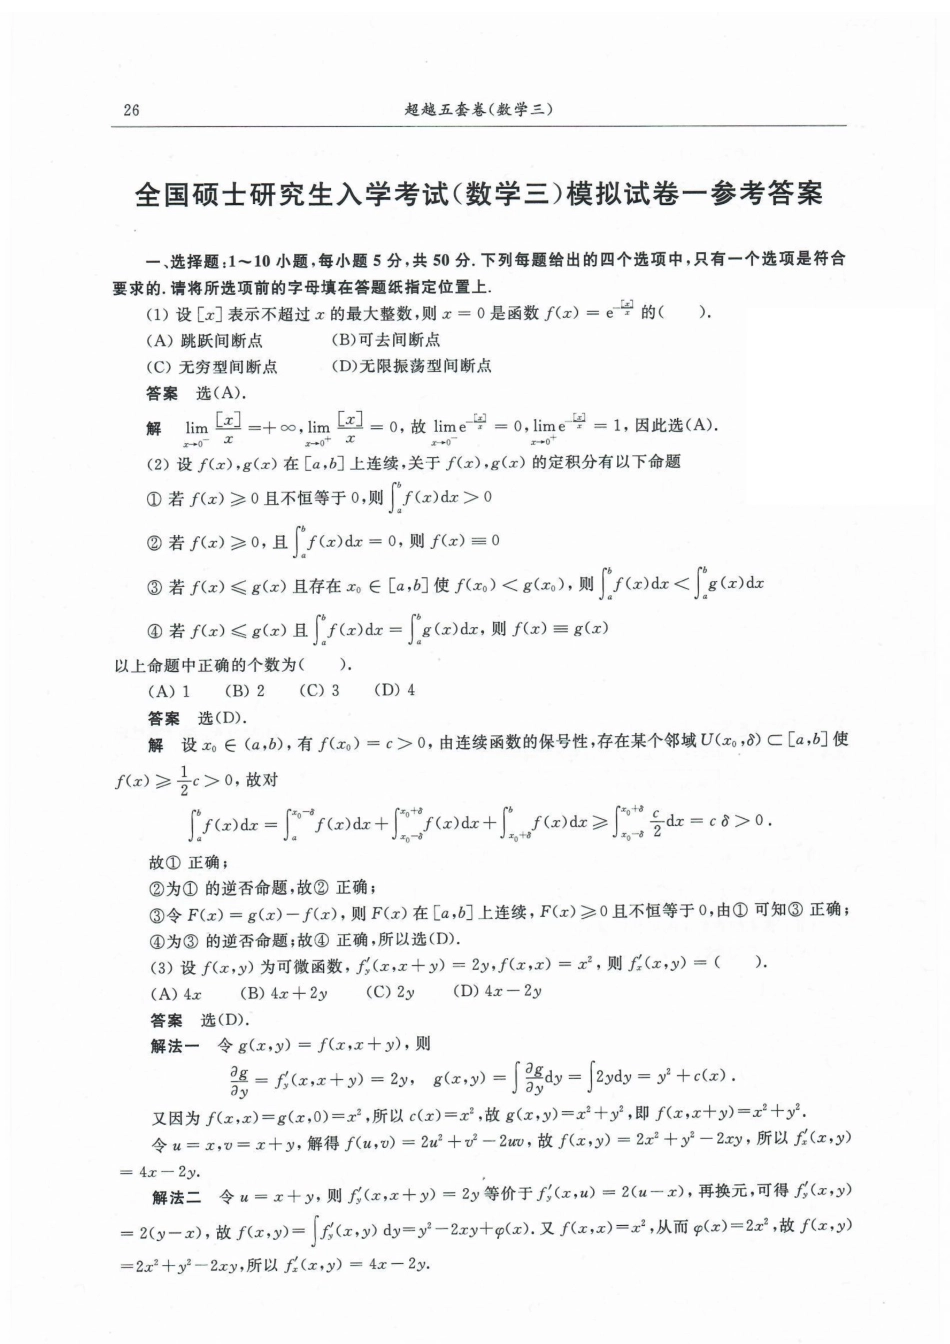 26
超越五套卷(数学三)
全国硕士研究生入学考试(数学三)模拟试卷一参考答案
一、选择题:1～10 小题,每小题 5 分,共 50 分. 下列每题给出的四个选项中,只有一个选项是符合
要求的. 请将所选项前的字母填在答题纸指定位置上.
(1) 设 [x] 表示不超过 x 的最大整数,则 x = 0 是函数 f(x) = e^{-[x]/x} 的(　　).
(A) 跳跃间断点　　(B)可去间断点
(C) 无穷型间断点　　(D)无限振荡型间断点
答案　选(A).
解　lim_{x→0⁻} [x]/x = +∞, lim_{x→0⁺} [x]/x = 0, 故 lim_{x→0⁻} e^{-[x]/x} = 0, lim_{x→0⁺} e^{-[x]/x} = 1, 因此选(A).
(2) 设 f(x),g(x) 在 [a,b] 上连续,关于 f(x),g(x) 的定积分有以下命题
① 若 f(x) ⩾ 0 且不恒等于 0,则 ∫_a^b f(x)dx > 0
② 若 f(x) ⩾ 0, 且 ∫_a^b f(x)dx = 0, 则 f(x) ≡ 0
③ 若 f(x) ⩽ g(x) 且存在 x₀ ∈ [a,b] 使 f(x₀) < g(x₀), 则 ∫_a^b f(x)dx < ∫_a^b g(x)dx
④ 若 f(x) ⩽ g(x) 且 ∫_a^b f(x)dx = ∫_a^b g(x)dx, 则 f(x) ≡ g(x)
以上命题中正确的个数为(　　).
(A) 1　(B) 2　(C) 3　(D) 4
答案　选(D).
解　设 x₀ ∈ (a,b), 有 f(x₀) = c > 0, 由连续函数的保号性,存在某个邻域 U(x₀,δ) ⊂ [a,b] 使
f(x) ⩾ 1/2 c > 0, 故对
∫_a^b f(x)dx = ∫_a^{x₀-δ} f(x)dx + ∫_{x₀-δ}^{x₀+δ} f(x)dx + ∫_{x₀+δ}^b f(x)dx ⩾ ∫_{x₀-δ}^{x₀+δ} c/2 dx = cδ > 0.
故① 正确;
②为① 的逆否命题,故② 正确;
③令 F(x) = g(x) − f(x), 则 F(x) 在 [a,b] 上连续, F(x) ⩾ 0 且不恒等于 0,由① 可知③ 正确;
④为③ 的逆否命题;故④ 正确,所以选(D).
(3) 设 f(x,y) 为可微函数, f′_y(x,x+y) = 2y, f(x,x) = x², 则 f′_x(x,y) = (　　).
(A) 4x　(B) 4x + 2y　(C) 2y　(D) 4x − 2y
答案　选(D).
解法一　令 g(x,y) = f(x,x+y), 则
∂g/∂y = f′_y(x,x+y) = 2y, g(x,y) = ∫ ∂g/∂y dy = ∫2ydy = y² + c(x).
又因为 f(x,x)=g(x,0)=x²,所以 c(x)=x²,故 g(x,y)=x²+y²,即 f(x,x+y)=x²+y².
令 u = x,v = x+y, 解得 f(u,v) = 2u² + v² − 2uv, 故 f(x,y) = 2x² + y² − 2xy, 所以 f′_x(x,y)
= 4x − 2y.
解法二　令 u = x+y, 则 f′_y(x,x+y) = 2y 等价于 f′_y(x,u) = 2(u−x), 再换元,可得 f′_y(x,y)
= 2(y−x), 故 f(x,y)= ∫f′_y(x,y) dy=y²−2xy+φ(x). 又 f(x,x)=x²,从而 φ(x)=2x²,故 f(x,y)
=2x²+y²−2xy,所以 f′_x(x,y) = 4x − 2y.